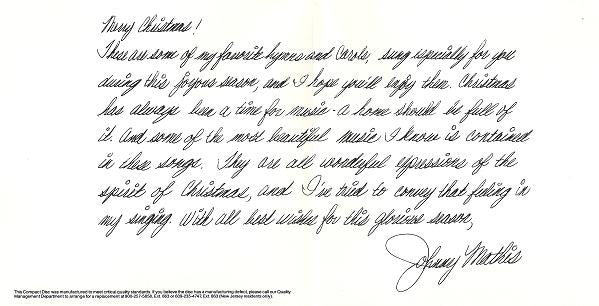 Merry Christmas!
These are some of my favorite hymns and Carols, sung especially for you
during this joyous season, and I hope you'll enjoy them. Christmas
has always been a time for music - a home should be full of
it. And some of the most beautiful music I know is contained
in these songs. They are all wonderful expressions of the
spirit of Christmas, and I've tried to convey that feeling in
my singing. With all best wishes for this glorious season,
Johnny Mathis
This Compact Disc was manufactured to meet critical quality standards. If you believe the disc has a manufacturing defect, please call our Quality
Management Department to arrange for a replacement at 800-257-5858, Ext. 663 or 609-235-4747, Ext. 663 (New Jersey residents only).